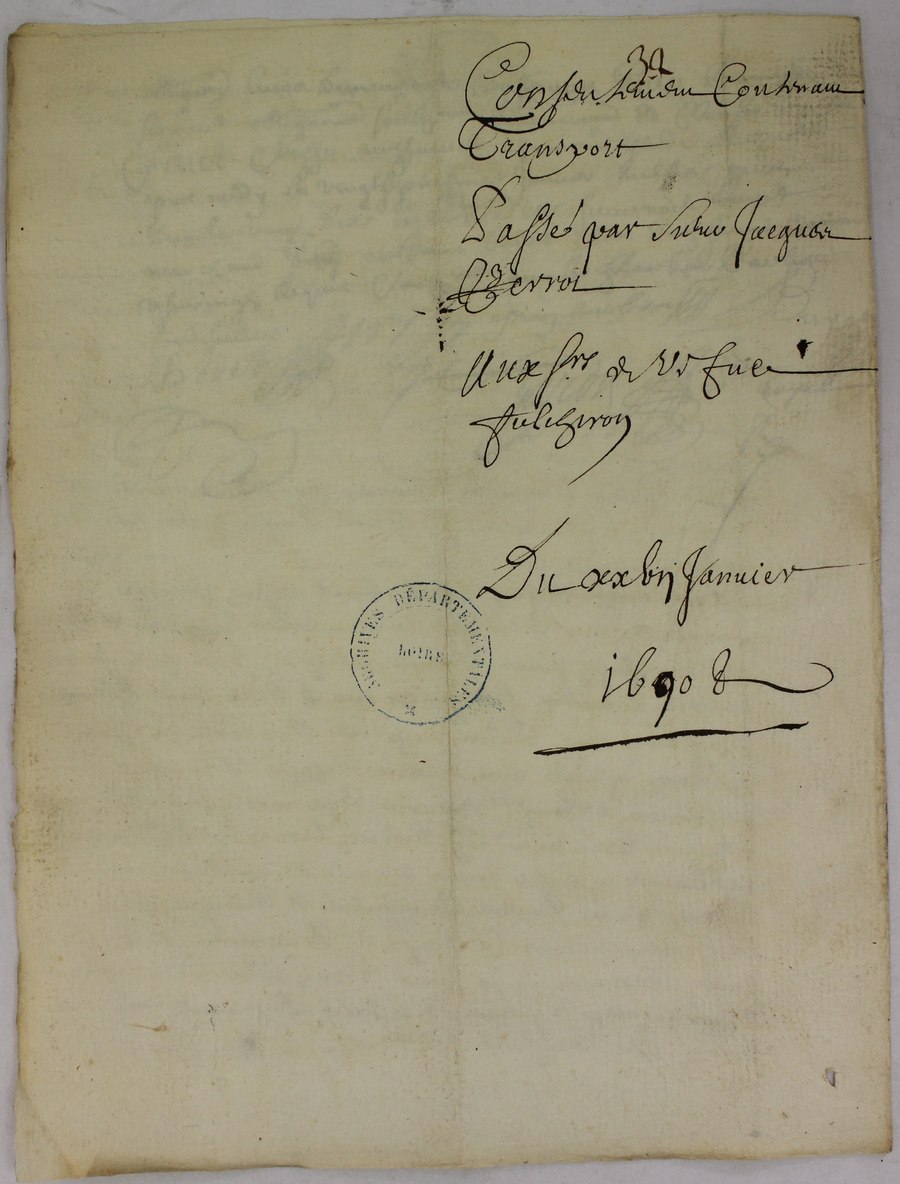 32
Consentement Contenant
Transport
Passé par Sieur Jacques
Perroi
Aux Srs de
fulchiron
Du xxvij Janvier
1690 &
ARCHIVES DÉPARTEMENTALES
LOIRE